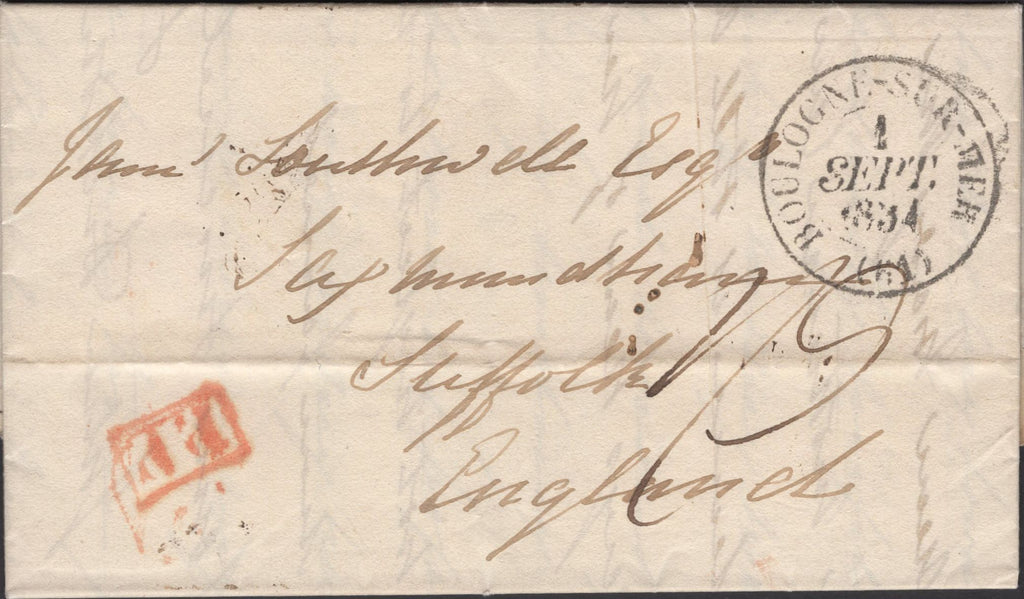 BOULOGNE-SUR-MER
1
SEPT.
1834
(61)
Jams Southwell Esqre
Saxmundham
Suffolk
England
1/5